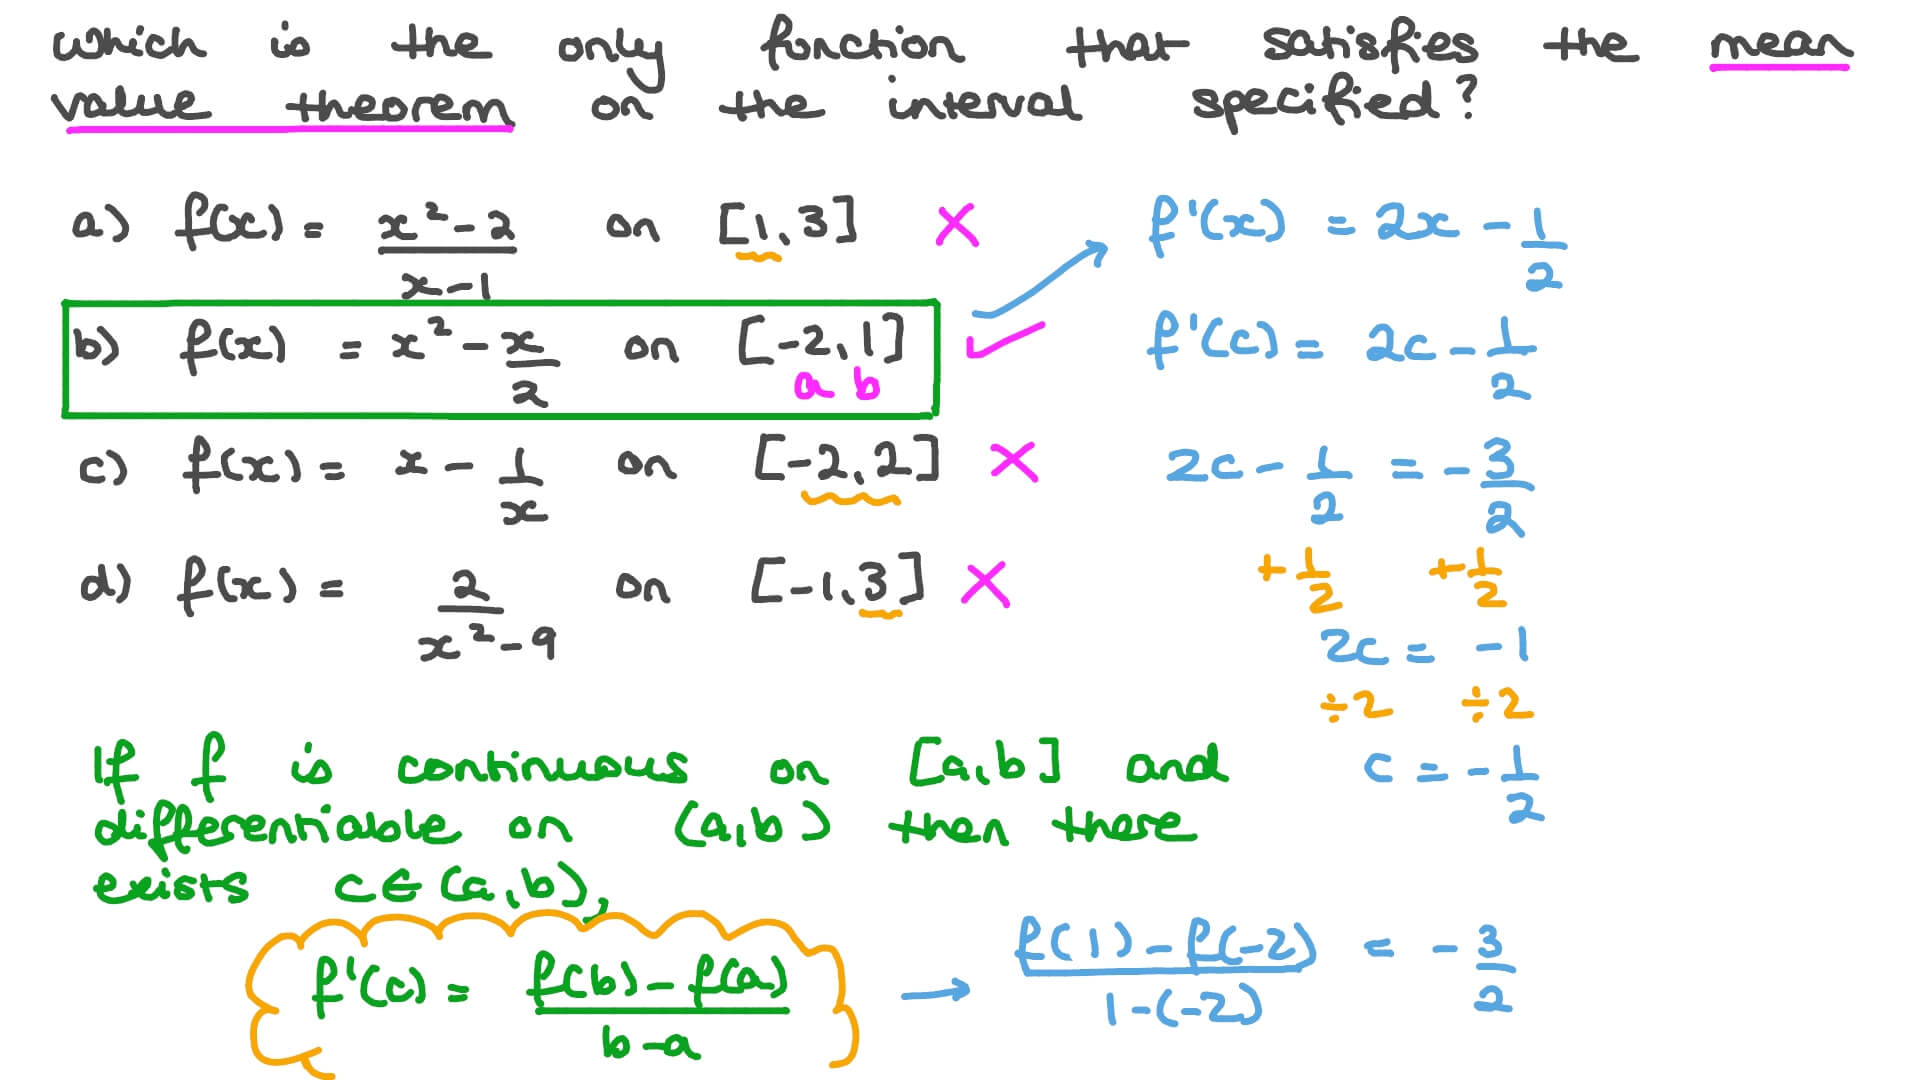 which is the only function that satisfies the mean
value theorem on the interval specified?
a) f(x) = (x²-2)/(x-1) on [1,3] ×
b) f(x) = x² - x/2 on [-2,1] ✓
a b
c) f(x) = x - 1/x on [-2,2] ×
d) f(x) = 2/(x²-9) on [-1,3] ×
f'(x) = 2x - 1/2
f'(c) = 2c - 1/2
2c - 1/2 = -3/2
+1/2 +1/2
2c = -1
÷2 ÷2
c = -1/2
If f is continuous on [a,b] and
differentiable on (a,b) then there
exists c∈(a,b),
f'(c) = (f(b)-f(a))/(b-a) → (f(1)-f(-2))/(1-(-2)) = -3/2